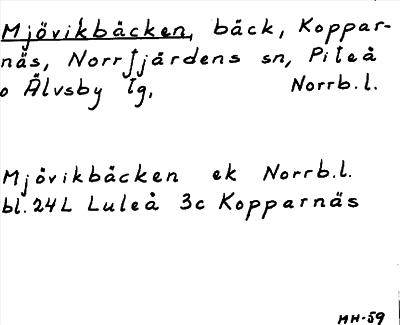 Mjövikbäcken, bäck, Koppar-
näs, Norrfjärdens sn, Piteå
o Älvsby tg, Norrb.l.
Mjövikbäcken ek Norrb.l.
bl. 24L Luleå 3c Kopparnäs
MH-59